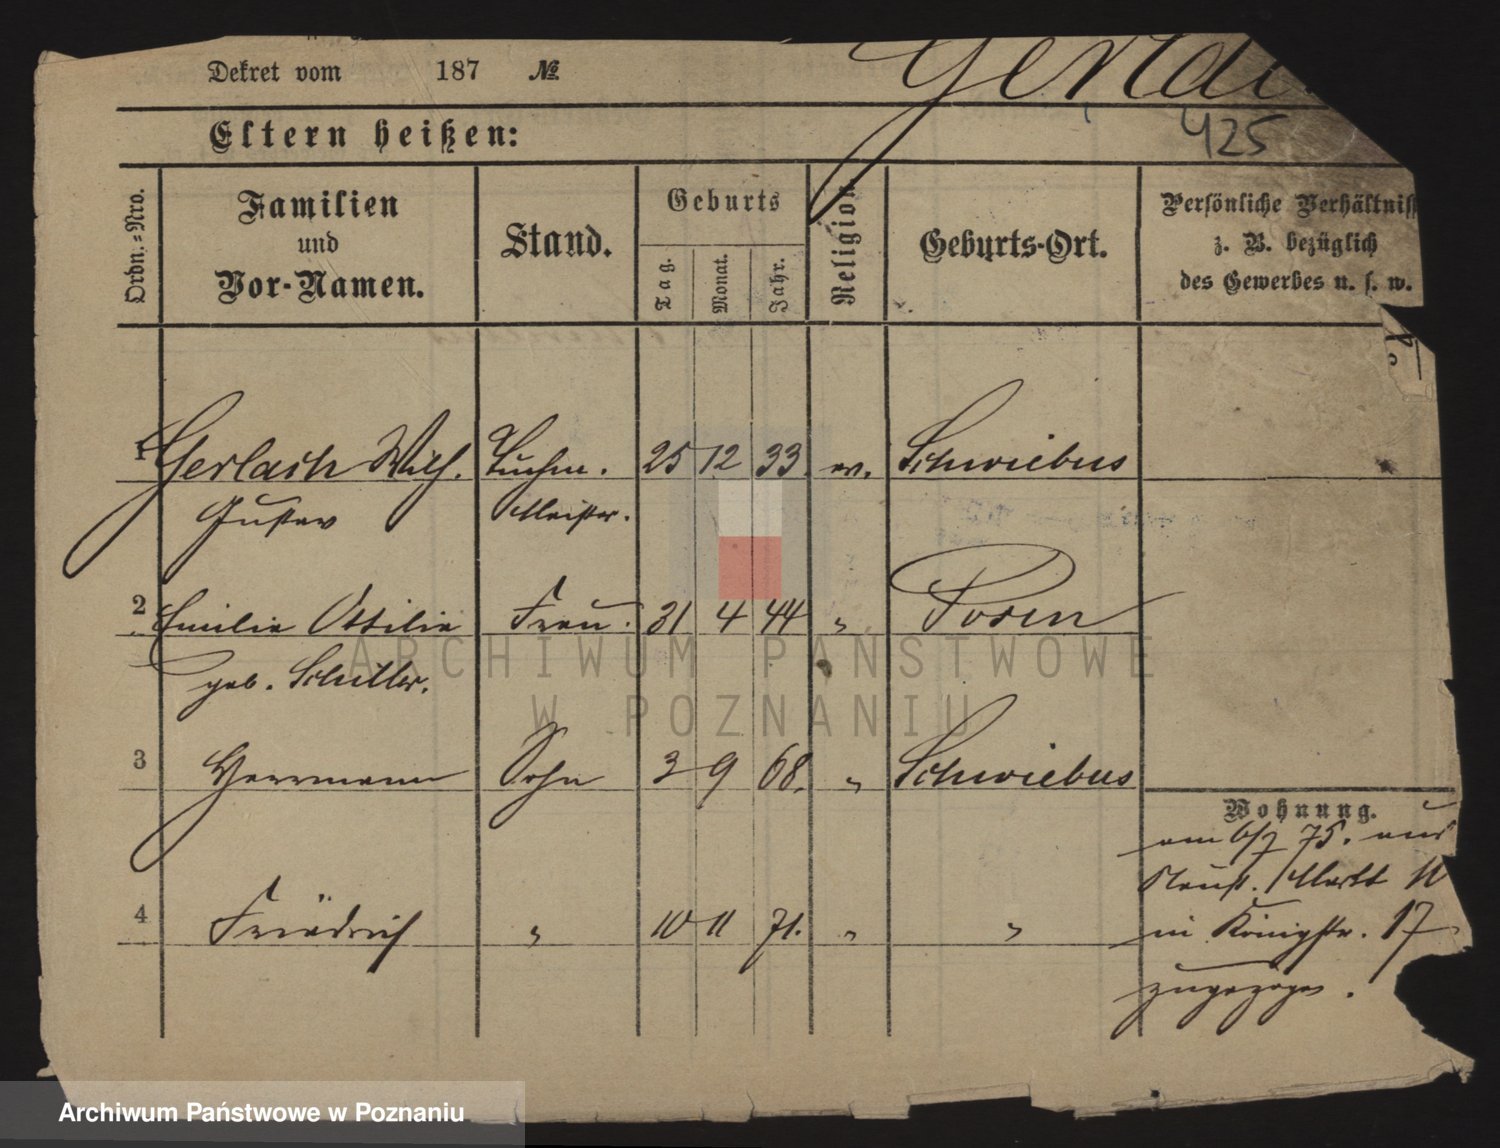 Dekret vom 187 №
425
Eltern heißen:
Ordn.=Nro.
Familien
und
Vor-Namen.
Stand.
Geburts
Tag.
Monat.
Jahr.
Religion
Geburts-Ort.
Persönliche Verhältniss
z. B. bezüglich
des Gewerbes u. s. w.
1 Gerlach Wilh. Tuchm. 25 12 33 ev. Schwiebus
Gustav Meister.
2 Emilie Ottilie Frau. 31 4 44 " Posen
geb. Schiller.
3 Herrmann Sohn 3 9 68. " Schwiebus
4 Friedrich " 10 11 71. " "
Wohnung.
am 6/7 75. aus
Neust. Markt
in Königstr. 17
zugezogen.
ARCHIWUM PAŃSTWOWE
W POZNANIU
Archiwum Państwowe w Poznaniu